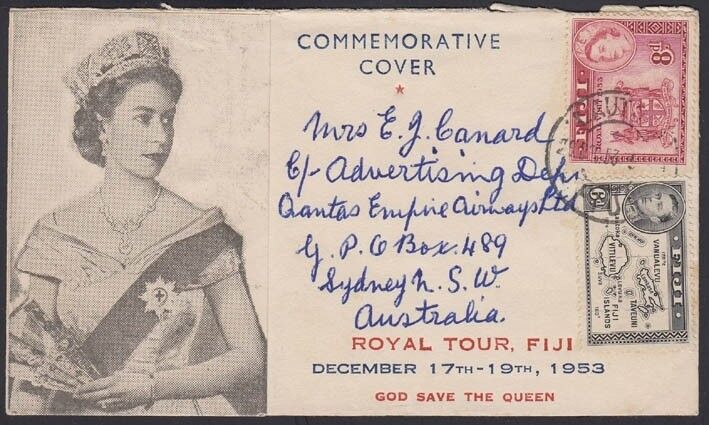 COMMEMORATIVE
COVER
Mrs E. J. Canard
C/- Advertising Dep
Qantas Empire Airways Ltd
G. P. O Box. 489
Sydney N. S. W.
Australia.
ROYAL TOUR, FIJI
DECEMBER 17TH-19TH, 1953
GOD SAVE THE QUEEN
8D
FIJI
ROYAL VISIT 1953
6D
FIJI
VANUALEVU
VITILEVU
TAVEUNI
FIJI
ISLANDS